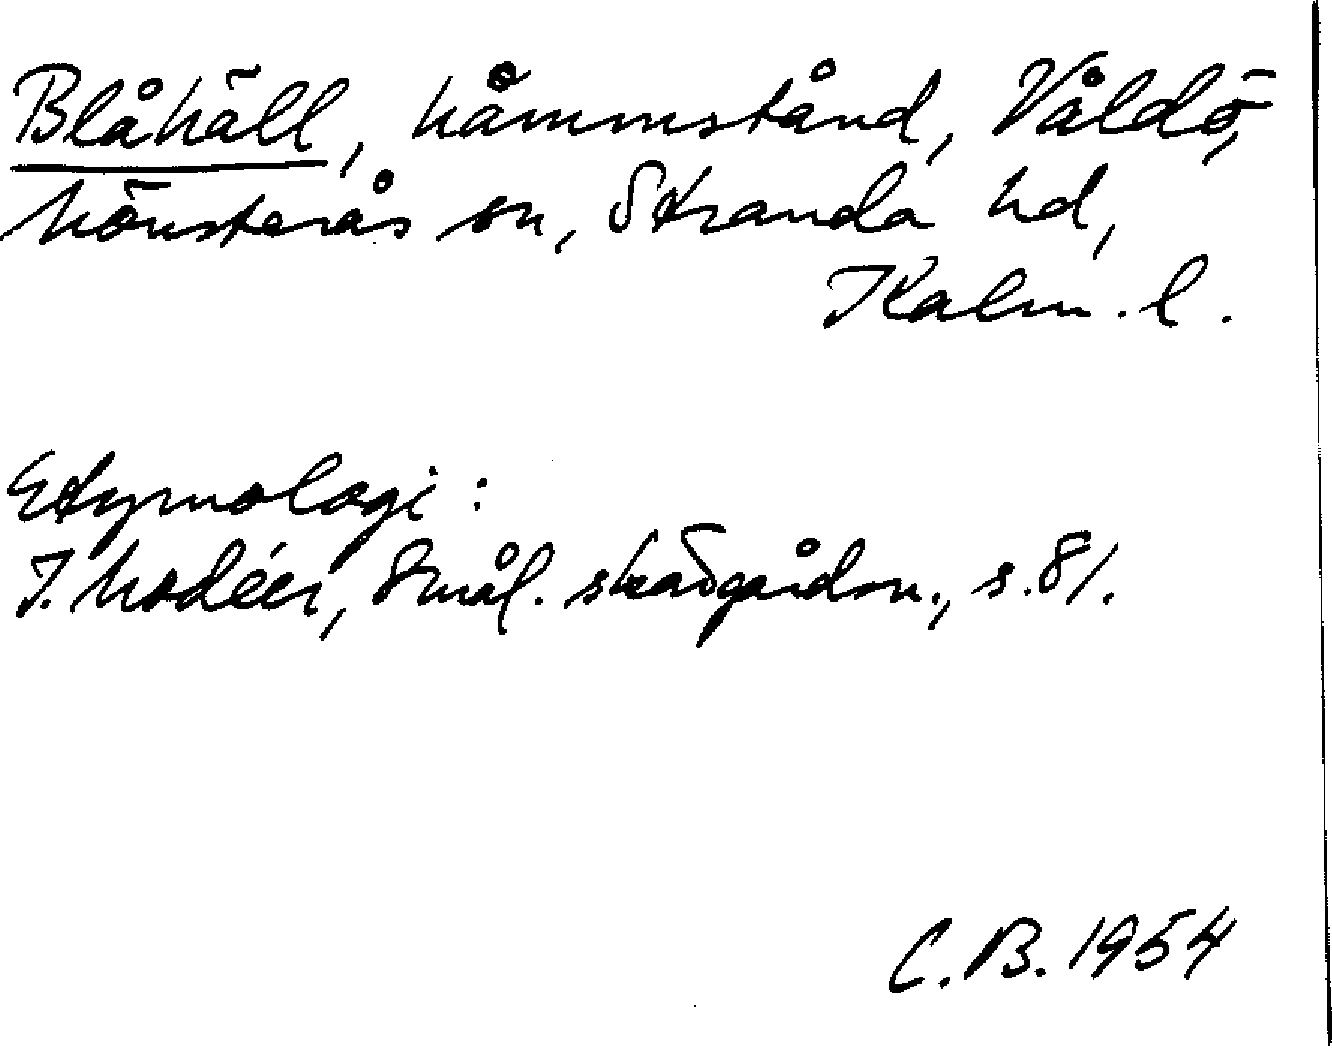 Blåhäll, håmmstånd, Våldö,
Mönsterås sn, Stranda hd,
Kalm. l.
Etymologi:
I. Modéer, Smål. skärgårdsn., s. 81.
C. B. 1954